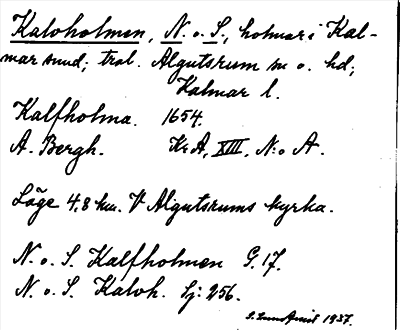 Kaloholmen, N. o. S., holmar i Kal-
mar sund; trol. Algutsrum sn o. hd;
Kalmar l.
Kalfholma. 1654.
A. Bergh. KrA, XIII, N:o A.
Läge 4,8 km. V Algutsrums kyrka.
N. o. S. Kalfholmen G. 17.
N. o. S. Kaloh. Sj: 256.
1937.